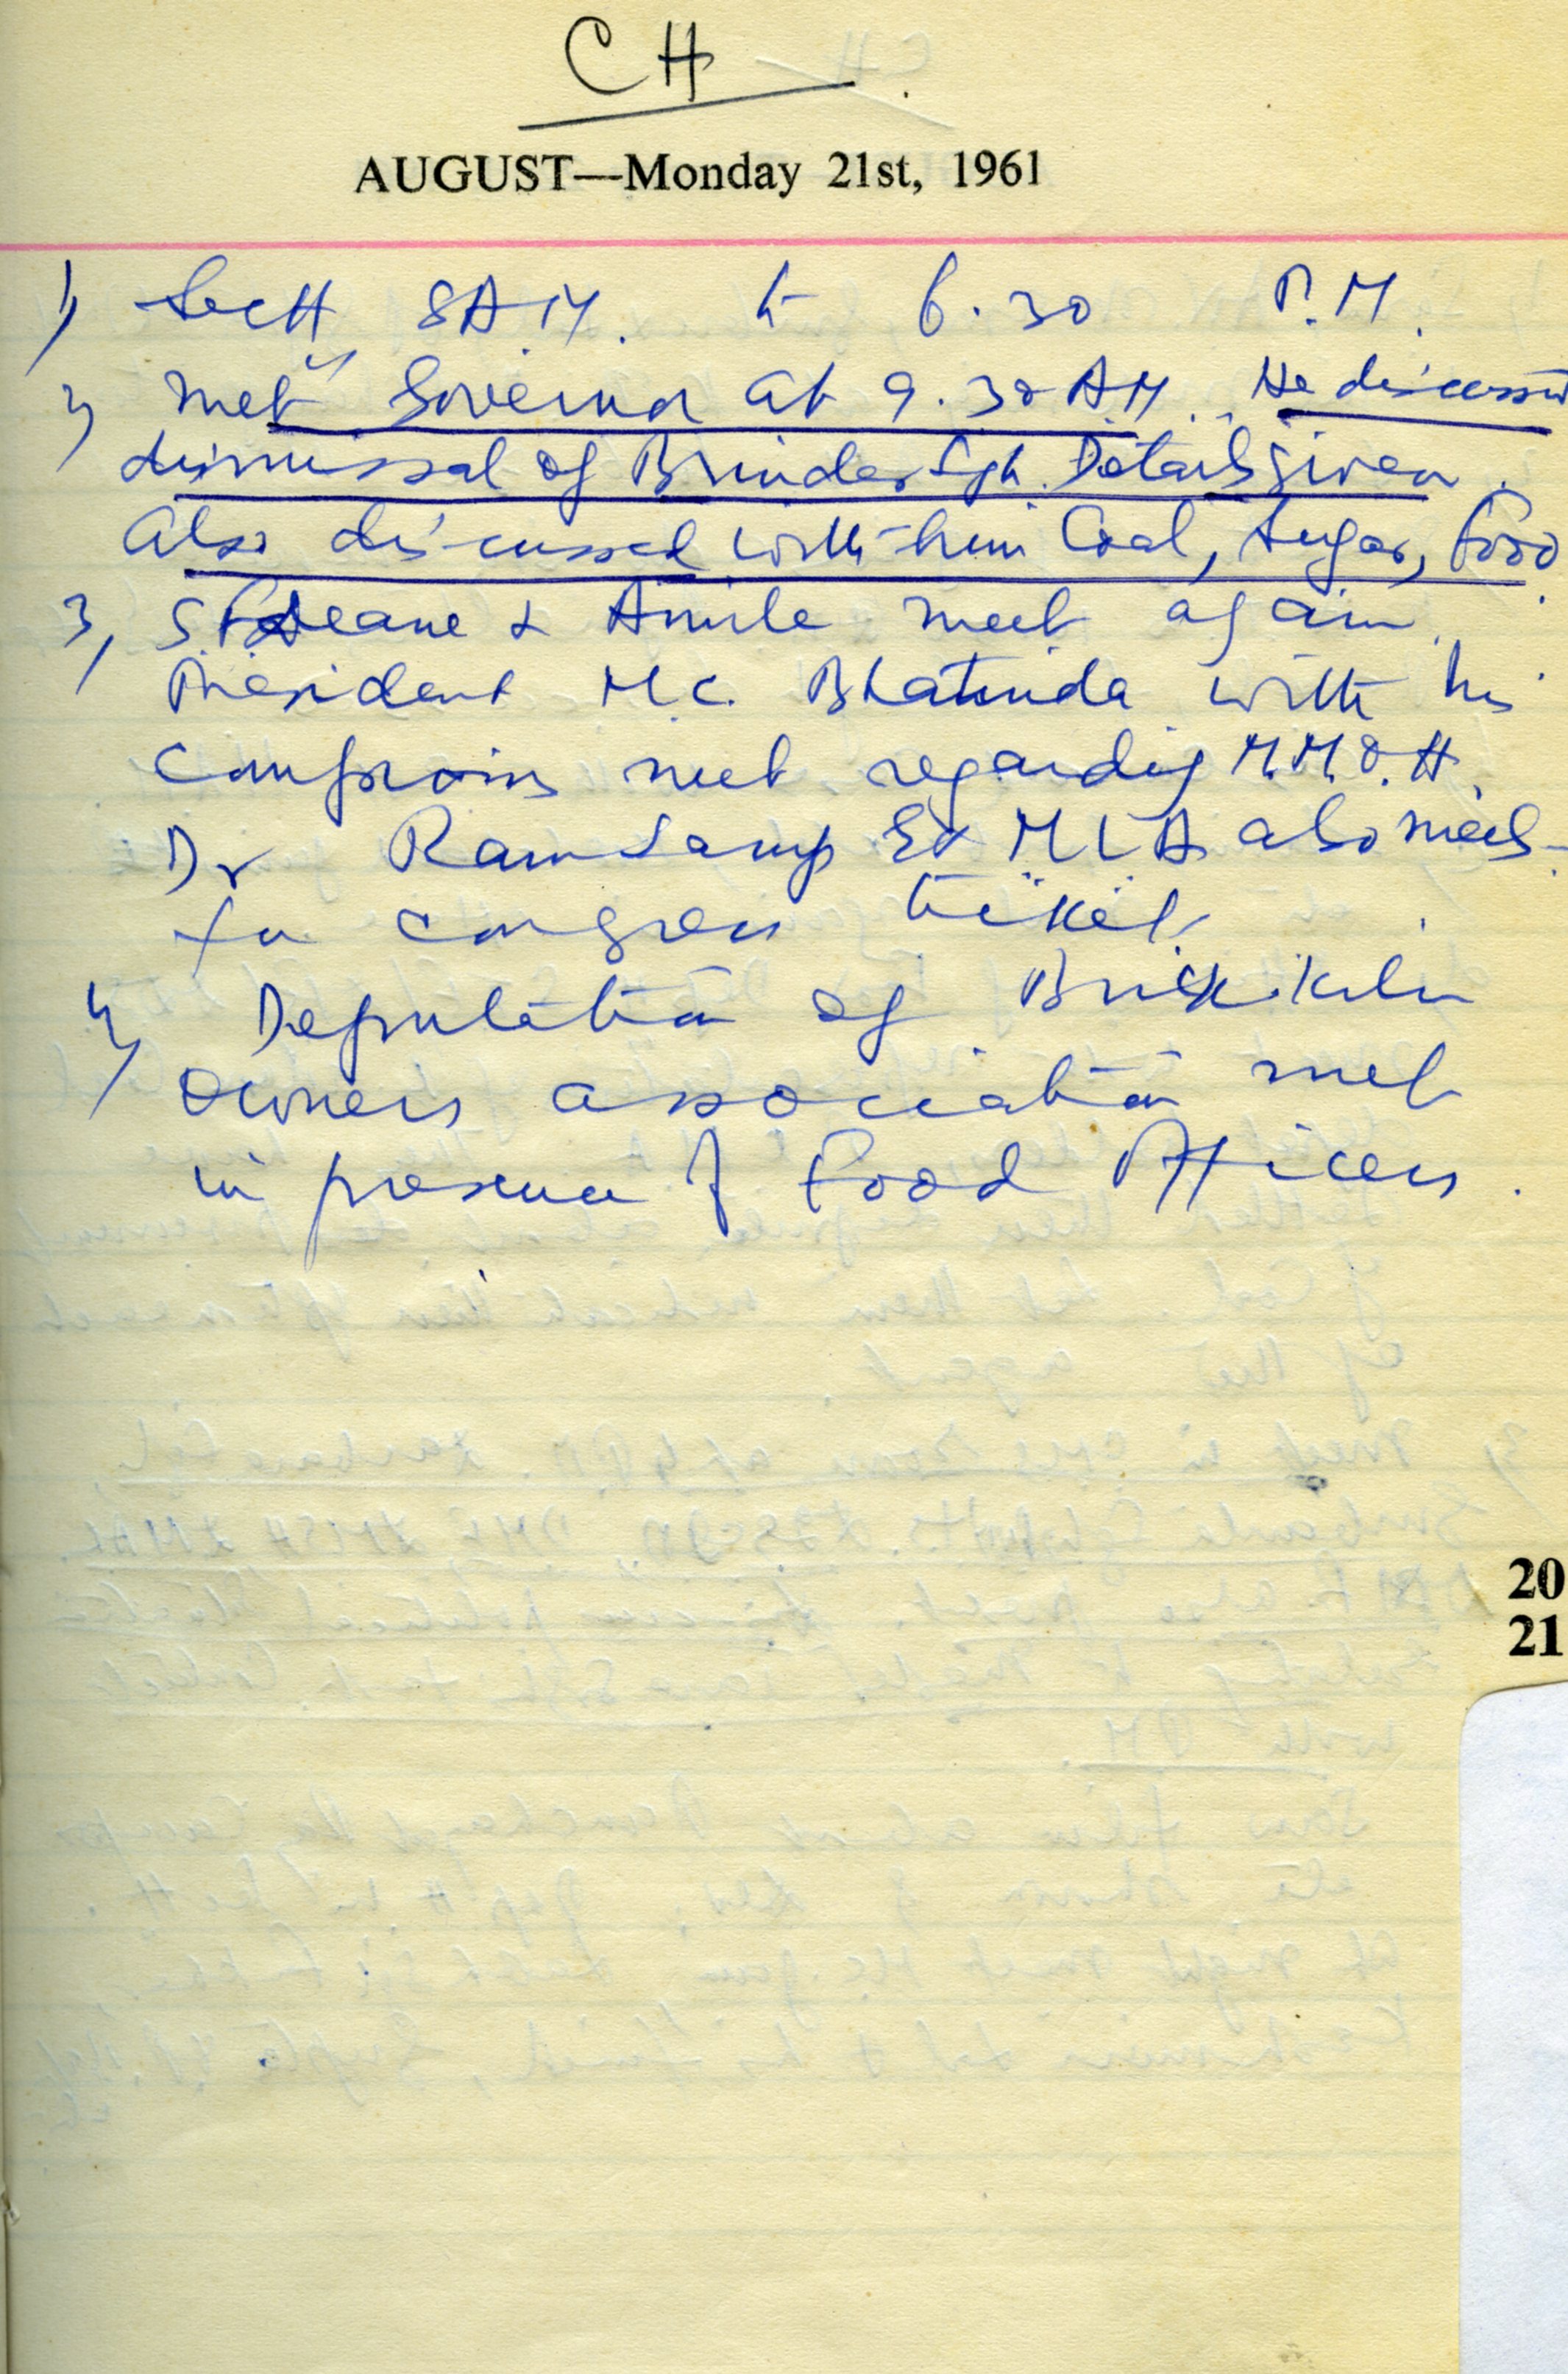 CH
AUGUST—Monday 21st, 1961
1) Sectt 8 A.M. to 6.30 P.M.
2) Met Governor at 9.30 A.M. He discussed
dismissal of Brinder Sgh. Details given.
Also discussed with him Coal, Sugar, Food.
3) & meet again.
President M.C. Bhatinda with his
meet regarding M.M.O.H.
Dr Ram Ex MLA also meets
for congress ticket.
4) Deputation of Brick Kiln
owners association met
in presence of Food Officers.
20
21